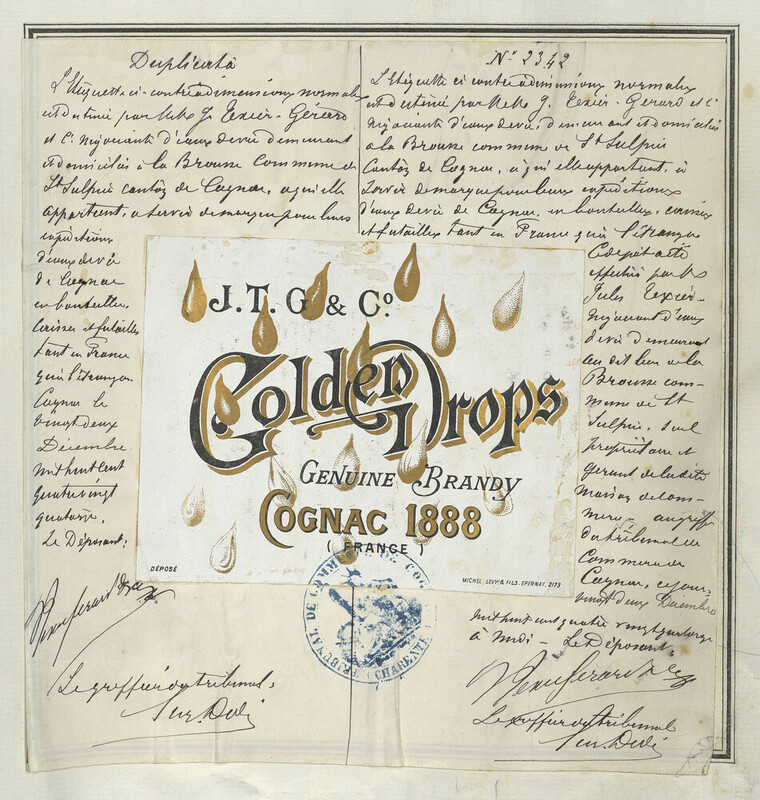 Duplicata
L'Etiquette ci-contre à dimensions normales
est destiné par MMs J. Texier-Gérard
et Cie Négociants d'eaux de vie demeurant
et domiciliés à la Brousse Commune de
St Sulpice canton de Cognac, à qui elle
appartient, à servir de marque pour leurs
expéditions
d'eaux de vie
de Cognac
en bouteilles,
caisses et futailles
tant en France
qu'à l'étranger
Cognac le
vingt deux
Décembre
mil huit cent
quatre vingt
quatorze.
Le Déposant,
Le greffier du tribunal
No 2342
L'Etiquette ci contre à dimensions normales
est destiné par MMs J. Texier-Gerard et Cie
Négociants d'eaux de vie, demeurant et domiciliés
à la Brousse commune de St Sulpice
Canton de Cognac, à qui elle appartient, à
servir de marque pour leurs expéditions
d'eaux de vie de Cognac, en bouteilles, caisses
et futailles tant en France qu'à l'étranger
Ce dépôt a été
effectué par Mr
Jules Texier-
Négociant d'eaux
de vie demeurant
au dit lieu de la
Brousse com-
mune de St
Sulpice, seul
propriétaire et
gérant de la dite
maison de com-
merce - au greffe
du tribunal de
Commerce de
Cognac, ce jour
vingt deux Décembre
mil huit cent quatre vingt quatorze
à midi - Le Déposant,
Le greffier du tribunal
J. T. G & Co
Golden Drops
GENUINE BRANDY
COGNAC 1888
( FRANCE )
DÉPOSÉ
MICHEL LEVY & FILS. EPERNAY. 2173
TRIBUNAL DE COMMERCE DE COGNAC
(CHARENTE)